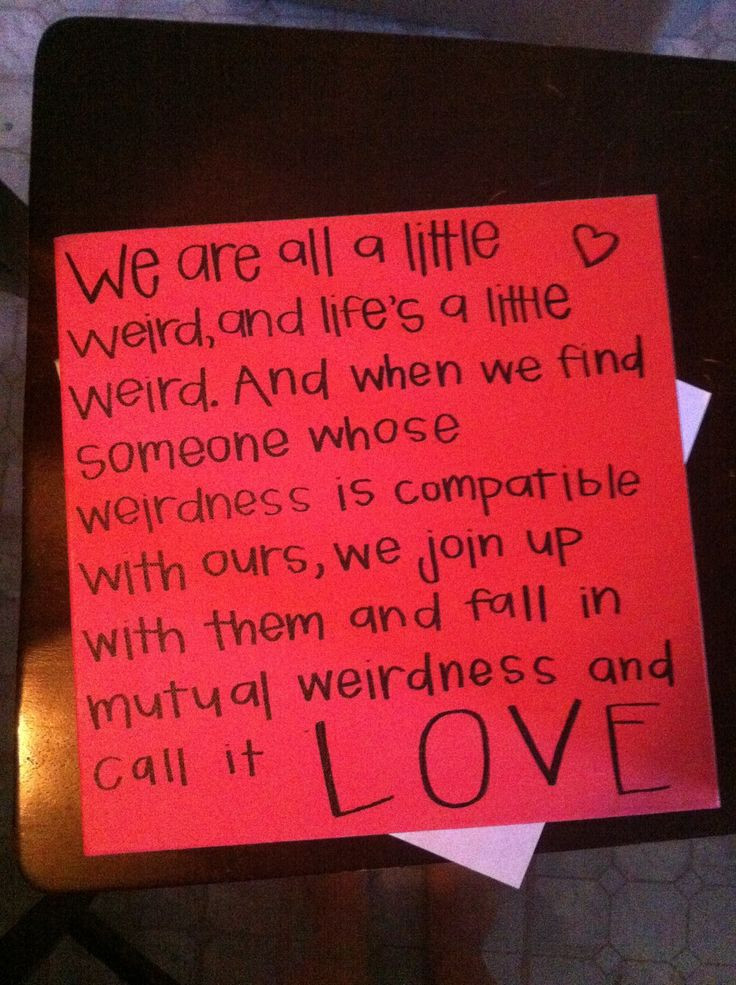 We are all a little
weird, and life's a little
weird. And when we find
someone whose
weirdness is compatible
with ours, we join up
with them and fall in
mutual weirdness and
call it LOVE